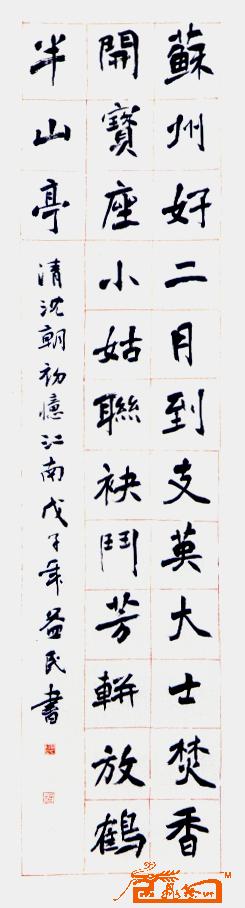 蘇州好二月到支英大士焚香
開寶座小姑聯袂鬥芳軿放鶴
半山亭
清沈朝初憶江南戊子年益民書